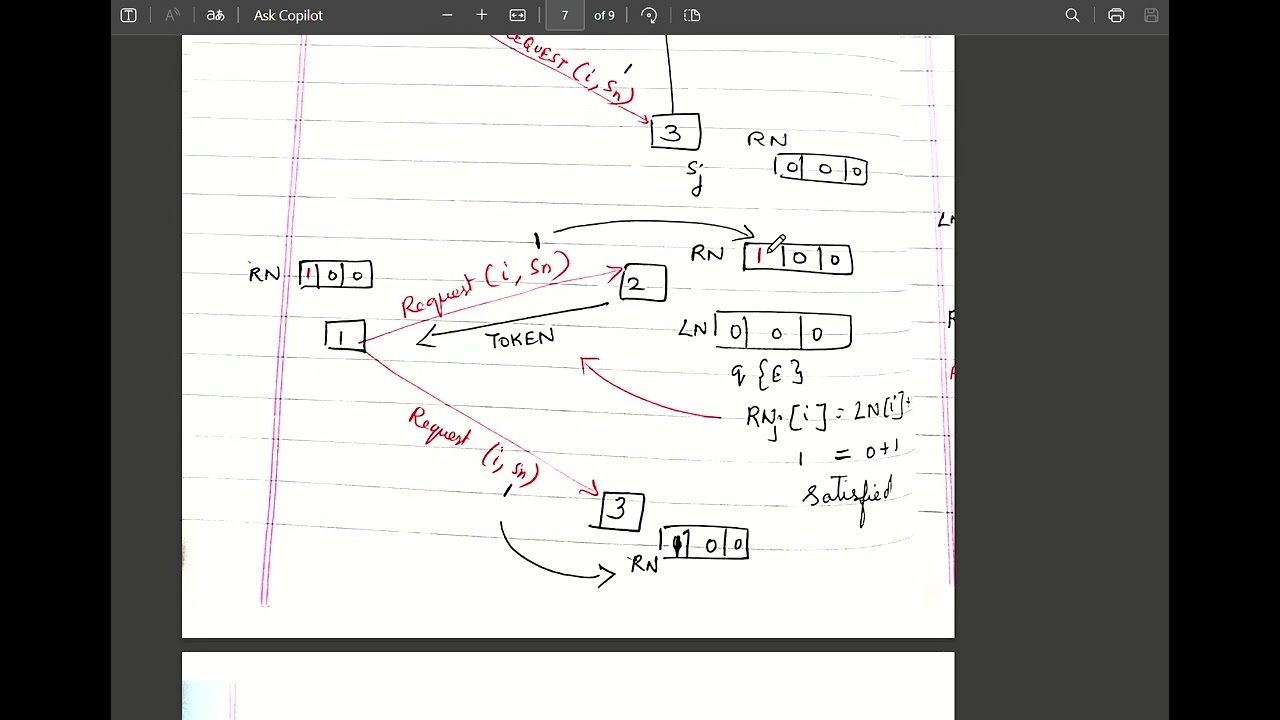 Ask Copilot
7 of 9
REQUEST (i, Sn)
1
3
Sj
RN
0 0 0
1
RN 1 0 0
RN 1 0 0
Request (i, Sn)
2
1
TOKEN
LN 0 0 0
q {ε}
RNj[i] = LN[i]+
1 = 0+1
satisfied
Request (i, Sn)
1
3
RN 1 0 0
LN